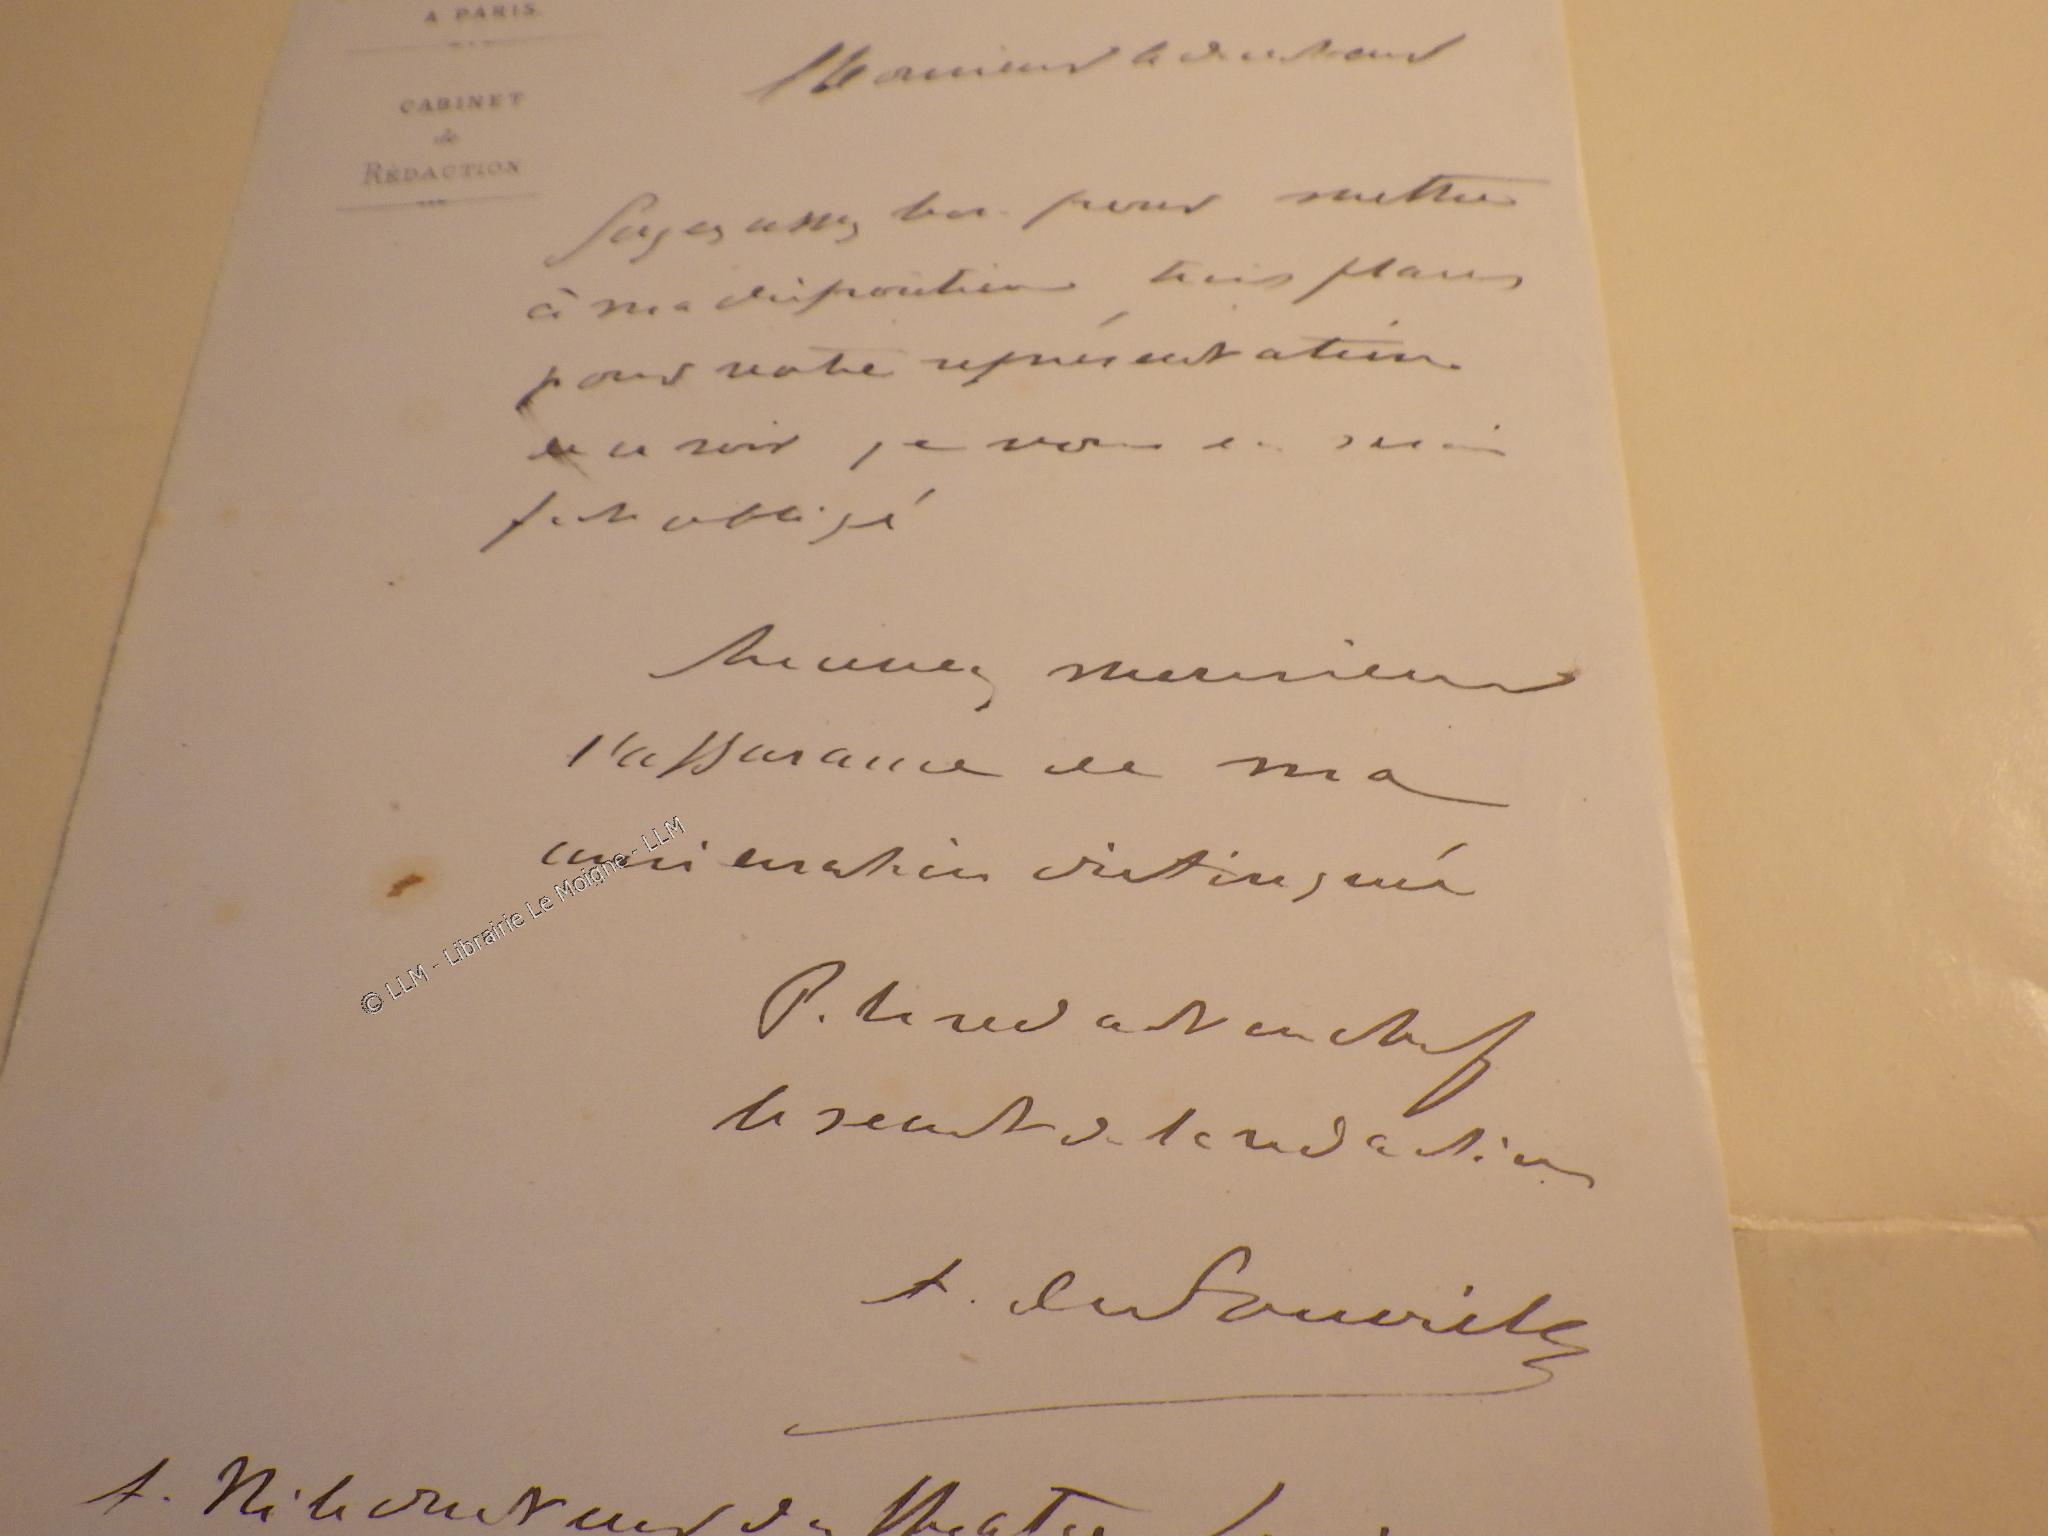 A PARIS.
CABINET
de
RÉDACTION
Monsieur le directeur
Soyez assez bon pour mettre
à ma disposition trois places
pour votre représentation
de ce soir je vous en serai
fort obligé
Recevez monsieur
l'assurance de ma
considération distinguée
© LLM - Librairie Le Moigne - LLM
P. le redact en chef
le secret de la redaction
A.
A. M. le directeur du Theatre